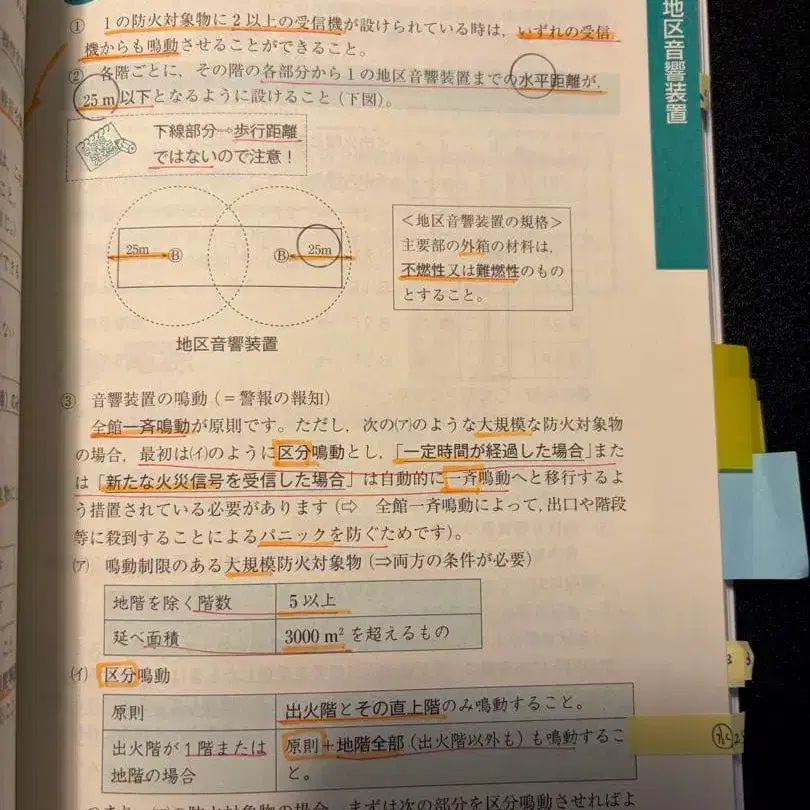 地区音響装置
① 1の防火対象物に2以上の受信機が設けられている時は，いずれの受信
機からも鳴動させることができること。
② 各階ごとに，その階の各部分から1の地区音響装置までの水平距離が，
25m以下となるように設けること（下図）。
下線部分→歩行距離
ではないので注意！
25m Ⓑ Ⓑ 25m
地区音響装置
＜地区音響装置の規格＞
主要部の外箱の材料は，
不燃性又は難燃性のもの
とすること。
③ 音響装置の鳴動（＝警報の報知）
全館一斉鳴動が原則です。ただし，次の㋐のような大規模な防火対象物
の場合，最初は㋑のように区分鳴動とし，「一定時間が経過した場合」また
は「新たな火災信号を受信した場合」は自動的に一斉鳴動へと移行するよ
う措置されている必要があります（⇨ 全館一斉鳴動によって，出口や階段
等に殺到することによるパニックを防ぐためです）。
㋐ 鳴動制限のある大規模防火対象物（⇒両方の条件が必要）
地階を除く階数 5以上
延べ面積 3000m²を超えるもの
㋑ 区分鳴動
原則 出火階とその直上階のみ鳴動すること。
出火階が1階または
地階の場合
原則＋地階全部（出火階以外も）も鳴動するこ
と。
の防火対象物の場合，まずは次の部分を区分鳴動させればよ